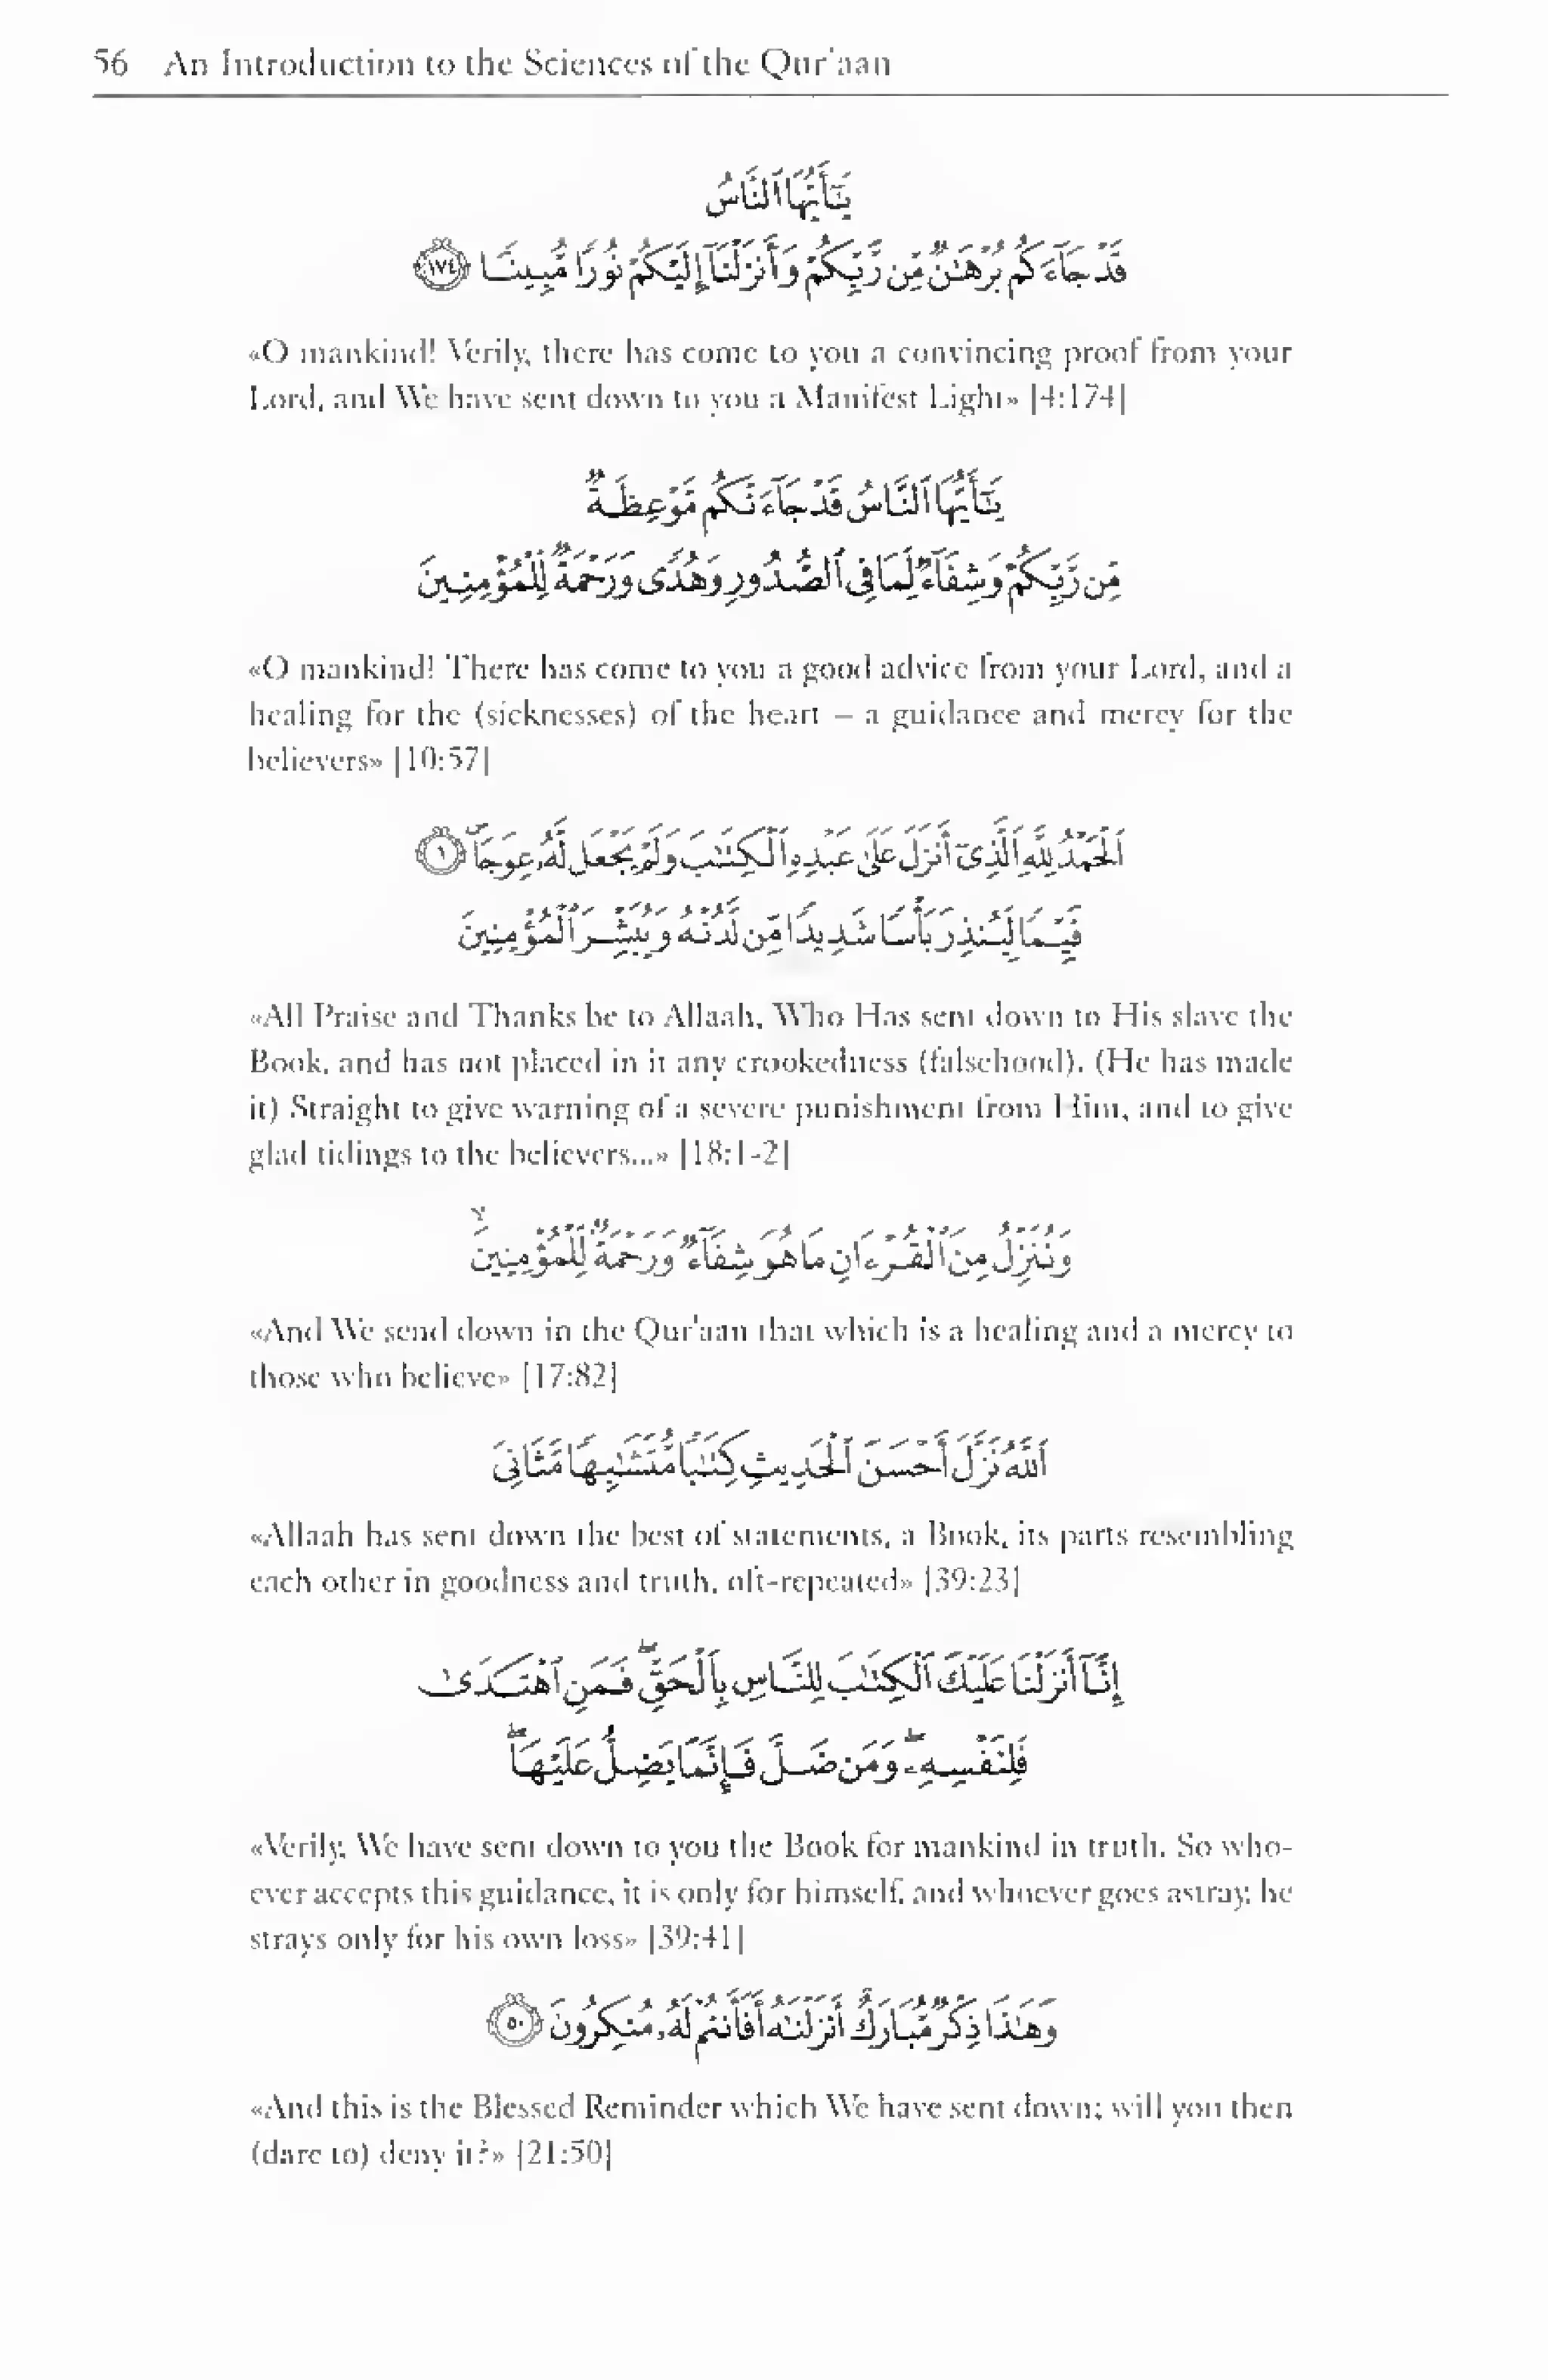 56 An Introduction to the Sciences of the Qur'aan
يَـٰٓأَيُّهَا ٱلنَّاسُ
قَدْ جَآءَكُم بُرْهَـٰنٌ مِّن رَّبِّكُمْ وَأَنزَلْنَآ إِلَيْكُمْ نُورًا مُّبِينًا ١٧٤
«O mankind! Verily, there has come to you a convincing proof from your
Lord, and We have sent down to you a Manifest Light» [4:174]
يَـٰٓأَيُّهَا ٱلنَّاسُ قَدْ جَآءَتْكُم مَّوْعِظَةٌ
مِّن رَّبِّكُمْ وَشِفَآءٌ لِّمَا فِى ٱلصُّدُورِ وَهُدًى وَرَحْمَةٌ لِّلْمُؤْمِنِينَ
«O mankind! There has come to you a good advice from your Lord, and a
healing for the (sicknesses) of the heart – a guidance and mercy for the
believers» [10:57]
ٱلْحَمْدُ لِلَّهِ ٱلَّذِىٓ أَنزَلَ عَلَىٰ عَبْدِهِ ٱلْكِتَـٰبَ وَلَمْ يَجْعَل لَّهُۥ عِوَجَا ۜ ١
قَيِّمًا لِّيُنذِرَ بَأْسًا شَدِيدًا مِّن لَّدُنْهُ وَيُبَشِّرَ ٱلْمُؤْمِنِينَ
«All Praise and Thanks be to Allaah, Who Has sent down to His slave the
Book, and has not placed in it any crookedness (falsehood). (He has made
it) Straight to give warning of a severe punishment from Him, and to give
glad tidings to the believers...» [18:1-2]
وَنُنَزِّلُ مِنَ ٱلْقُرْءَانِ مَا هُوَ شِفَآءٌ وَرَحْمَةٌ لِّلْمُؤْمِنِينَ ۙ
«And We send down in the Qur'aan that which is a healing and a mercy to
those who believe» [17:82]
ٱللَّهُ نَزَّلَ أَحْسَنَ ٱلْحَدِيثِ كِتَـٰبًا مُّتَشَـٰبِهًا مَّثَانِىَ
«Allaah has sent down the best of statements, a Book, its parts resembling
each other in goodness and truth, oft-repeated» [39:23]
إِنَّآ أَنزَلْنَا عَلَيْكَ ٱلْكِتَـٰبَ لِلنَّاسِ بِٱلْحَقِّ ۖ فَمَنِ ٱهْتَدَىٰ
فَلِنَفْسِهِۦ ۖ وَمَن ضَلَّ فَإِنَّمَا يَضِلُّ عَلَيْهَا ۖ
«Verily, We have sent down to you the Book for mankind in truth. So who-
ever accepts this guidance, it is only for himself, and whoever goes astray, he
strays only for his own loss» [39:41]
وَهَـٰذَا ذِكْرٌ مُّبَارَكٌ أَنزَلْنَـٰهُ أَفَأَنتُمْ لَهُۥ مُنكِرُونَ ٥٠
«And this is the Blessed Reminder which We have sent down; will you then
(dare to) deny it?» [21:50]